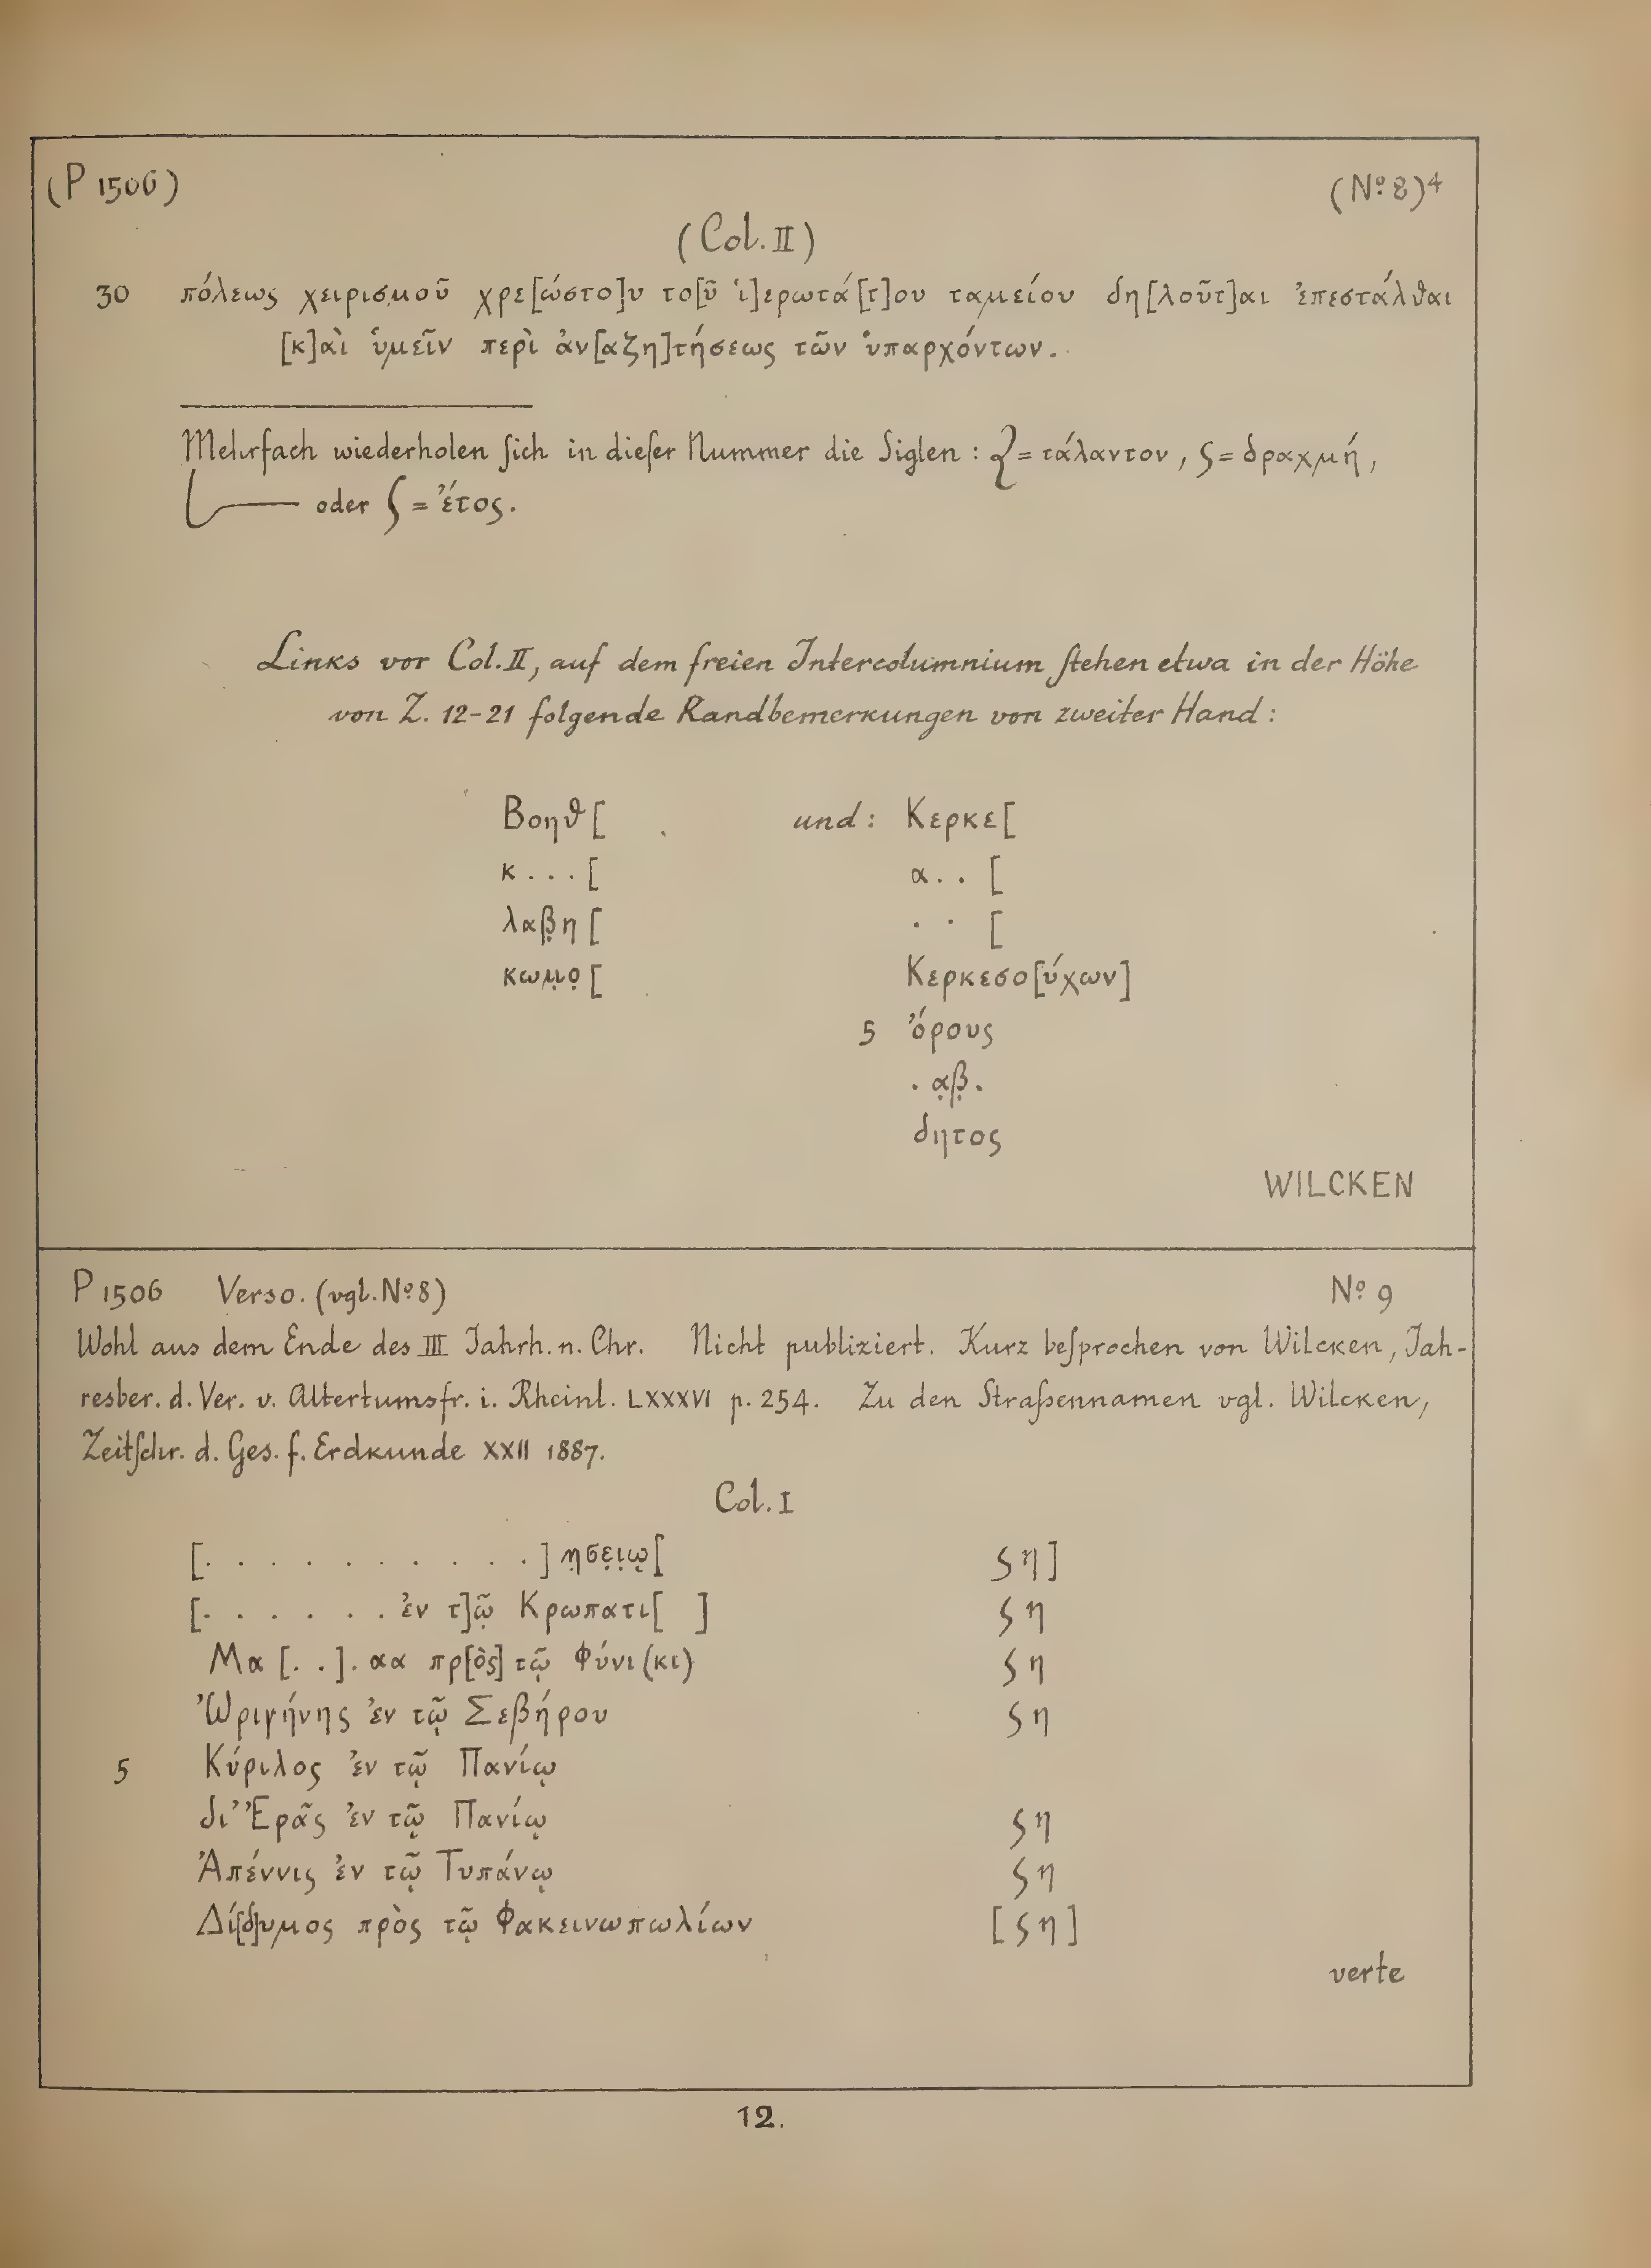 (P 1506) (No 8)4
(Col. II)
30 πόλεως χειρισμοῦ χρε[ώστο]υ το[ῦ ἱ]ερωτά[τ]ου ταμείου δη[λοῦτ]αι ἐπεστάλθαι
[κ]αὶ ὑμεῖν περὶ ἀν[αζη]τήσεως τῶν ὑπαρχόντων.
Mehrfach wiederholen ſich in dieſer Nummer die Siglen : = τάλαντον, ς = δραχμή,
oder = ἔτος.
Links vor Col. II, auf dem freien Intercolumnium ſtehen etwa in der Höhe
von Z. 12-21 folgende Randbemerkungen von zweiter Hand :
Βοηθ[ und : Κερκε[
κ . . . [ α . . [
λαβ̣η [ . . [
κωμ̣ο̣ [ Κερκεσο[ύχων]
5 ὄρους
. α̣β̣ .
δητος
WILCKEN
P 1506 Verso. (vgl. No 8) No 9
Wohl aus dem Ende des III Jahrh. n. Chr. Nicht publiziert. Kurz beſprochen von Wilcken, Jah-
resber. d. Ver. v. Altertumsfr. i. Rheinl. LXXXVI p. 254. Zu den Straßennamen vgl. Wilcken,
Zeitſchr. d. Ges. f. Erdkunde XXII 1887.
Col. I
[. . . . . . . . . . .] η̣σε̣ι̣ω̣[ ς η ]
[. . . . . . ἐν τ]ῷ Κρωπατι[ ] ς η
Μα [. .] . αα πρ[ὸς] τῷ Φύνι(κι) ς η
Ὠριγήνης ἐν τῷ Σεβήρου ς η
5 Κύριλος ἐν τῷ Πανίῳ
δι’ Ἐρᾶς ἐν τῷ Πανίῳ ς η
Ἀπέννις ἐν τῷ Τυπάνῳ ς η
Δί[δ]υμος πρὸς τῷ Φακεινωπωλίων [ ς η ]
verte
12.